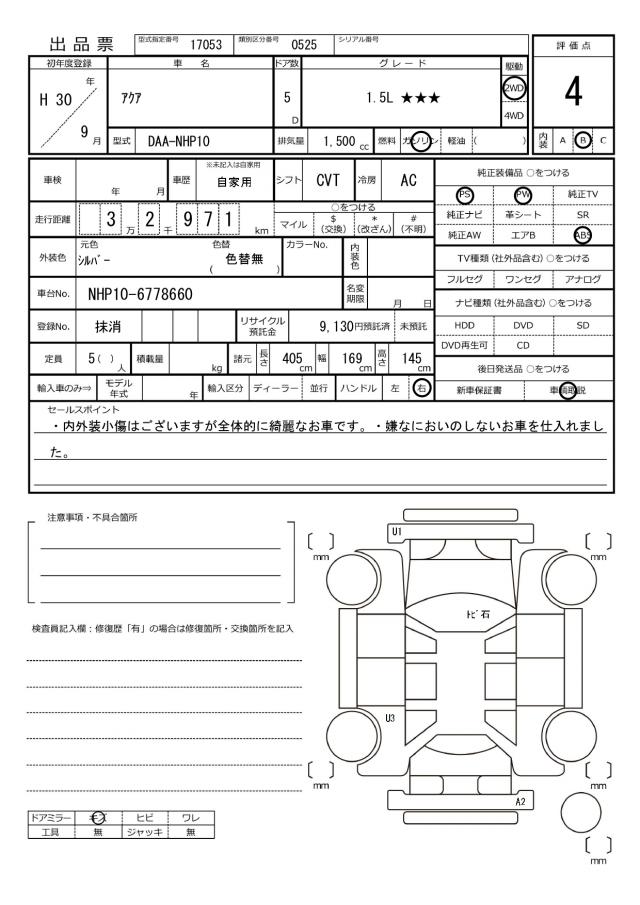 出品票 型式指定番号 17053 類別区分番号 0525 シリアル番号
評価点
4
内装 A B C
初年度登録 車名 ドア数 グレード 駆動
H 30 年 9 月
アクア
5 D
1.5L ★★★
2WD
4WD
型式 DAA-NHP10 排気量 1,500 cc 燃料 ガソリン 軽油 ( )
車検 年 月 車歴 ※未記入は自家用 自家用 シフト CVT 冷房 AC
走行距離 3 万 2 千 9 7 1 km
○をつける
マイル $(交換) *(改ざん) #(不明)
外装色 元色 シルバー 色替 ( 色替無 ) カラーNo. 内装色
車台No. NHP10-6778660 名変期限 月 日
登録No. 抹消 リサイクル預託金 9,130円預託済 未預託
定員 5 ( ) 人 積載量 kg 諸元 長さ 405 cm 幅 169 cm 高さ 145 cm
輸入車のみ⇒ モデル年式 年 輸入区分 ディーラー 並行 ハンドル 左 右
純正装備品 ○をつける
PS PW 純正TV
純正ナビ 革シート SR
純正AW エアB ABS
TV種類 (社外品含む) ○をつける
フルセグ ワンセグ アナログ
ナビ種類 (社外品含む) ○をつける
HDD DVD SD
DVD再生可 CD
後日発送品 ○をつける
新車保証書 車輌取説
セールスポイント
・内外装小傷はございますが全体的に綺麗なお車です。・嫌なにおいのしないお車を仕入れまし
た。
注意事項・不具合箇所
検査員記入欄：修復歴「有」の場合は修復箇所・交換箇所を記入
ドアミラー キズ ヒビ ワレ
工具 無 ジャッキ 無
U1
mm
mm
トビ石
U3
mm
mm
A2
mm